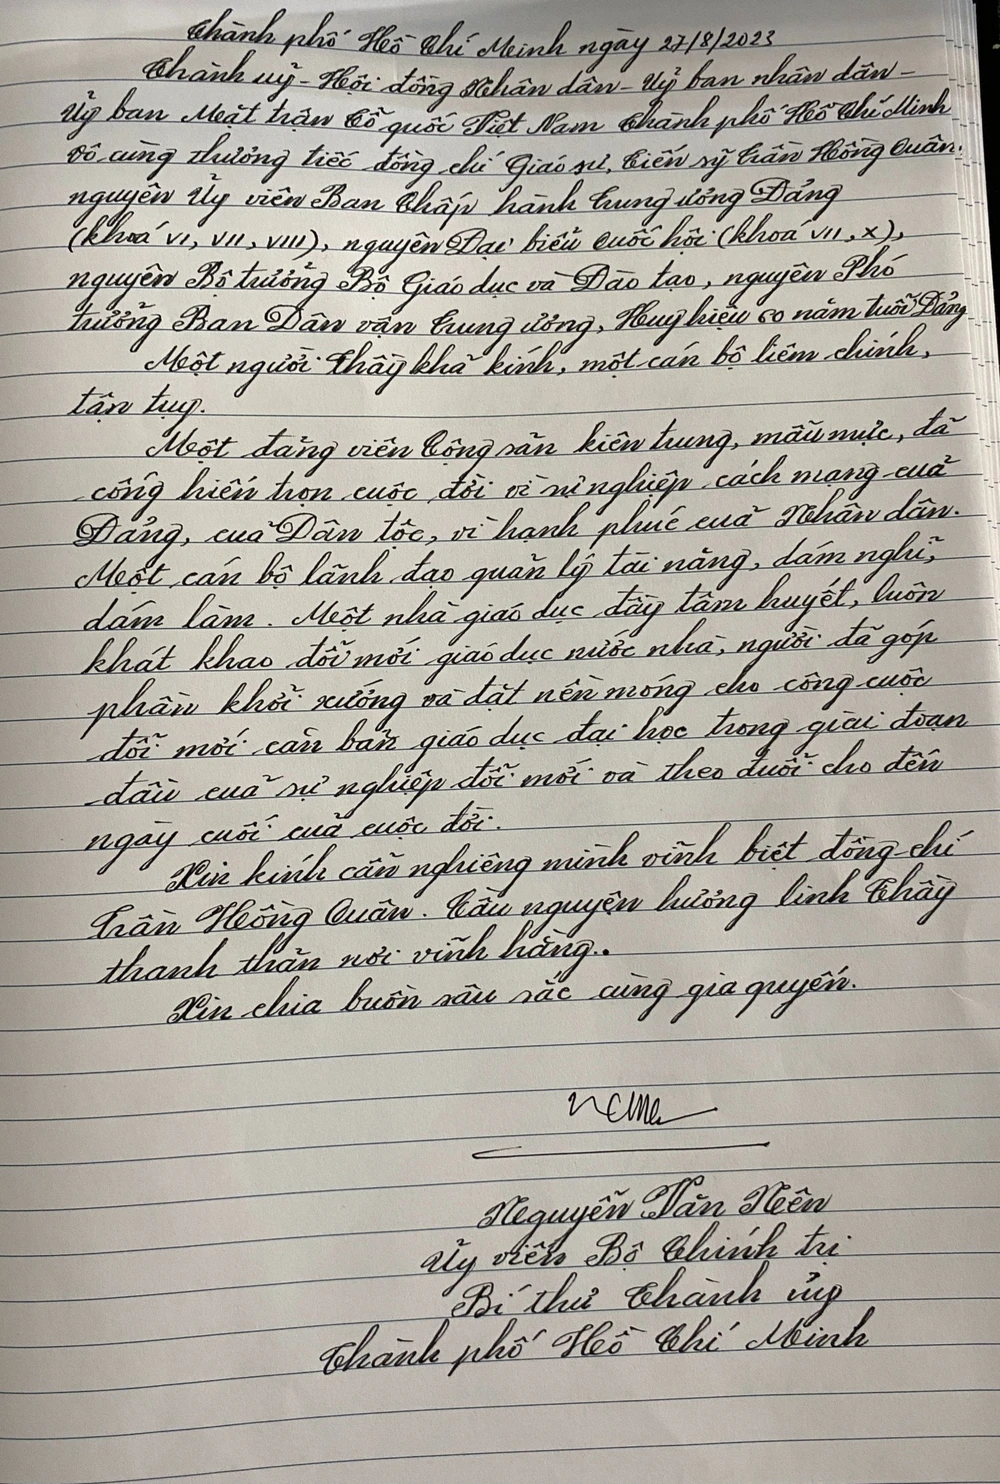 Thành phố Hồ Chí Minh ngày 27/8/2023
Thành uỷ - Hội đồng Nhân dân - Uỷ ban nhân dân -
Uỷ ban Mặt trận Tổ quốc Việt Nam Thành phố Hồ Chí Minh
vô cùng thương tiếc đồng chí Giáo sư, Tiến sỹ Trần Hồng Quân.
nguyên Ủy viên Ban Chấp hành Trung ương Đảng
(khoá VI, VII, VIII), nguyên Đại biểu Quốc hội (khoá VII, X),
nguyên Bộ trưởng Bộ Giáo dục và Đào tạo, nguyên Phó
trưởng Ban Dân vận Trung ương, Huy hiệu 60 năm tuổi Đảng
Một người Thầy khả kính, một cán bộ liêm chính,
tận tụy.
Một đảng viên Cộng sản kiên trung, mẫu mực, đã
cống hiến trọn cuộc đời vì sự nghiệp cách mạng của
Đảng, của Dân tộc, vì hạnh phúc của Nhân dân.
Một cán bộ lãnh đạo quản lý tài năng, dám nghĩ,
dám làm. Một nhà giáo dục đầy tâm huyết, luôn
khát khao đổi mới giáo dục nước nhà, người đã góp
phần khởi xướng và đặt nền móng cho công cuộc
đổi mới căn bản giáo dục đại học trong giai đoạn
đầu của sự nghiệp đổi mới và theo đuổi cho đến
ngày cuối của cuộc đời.
Xin kính cẩn nghiêng mình vĩnh biệt đồng chí
Trần Hồng Quân. Cầu nguyện hương linh Thầy
thanh thản nơi vĩnh hằng..
Xin chia buồn sâu sắc cùng gia quyến.
Nguyễn Văn Nên
Ủy viên Bộ Chính trị
Bí thư Thành ủy
Thành phố Hồ Chí Minh